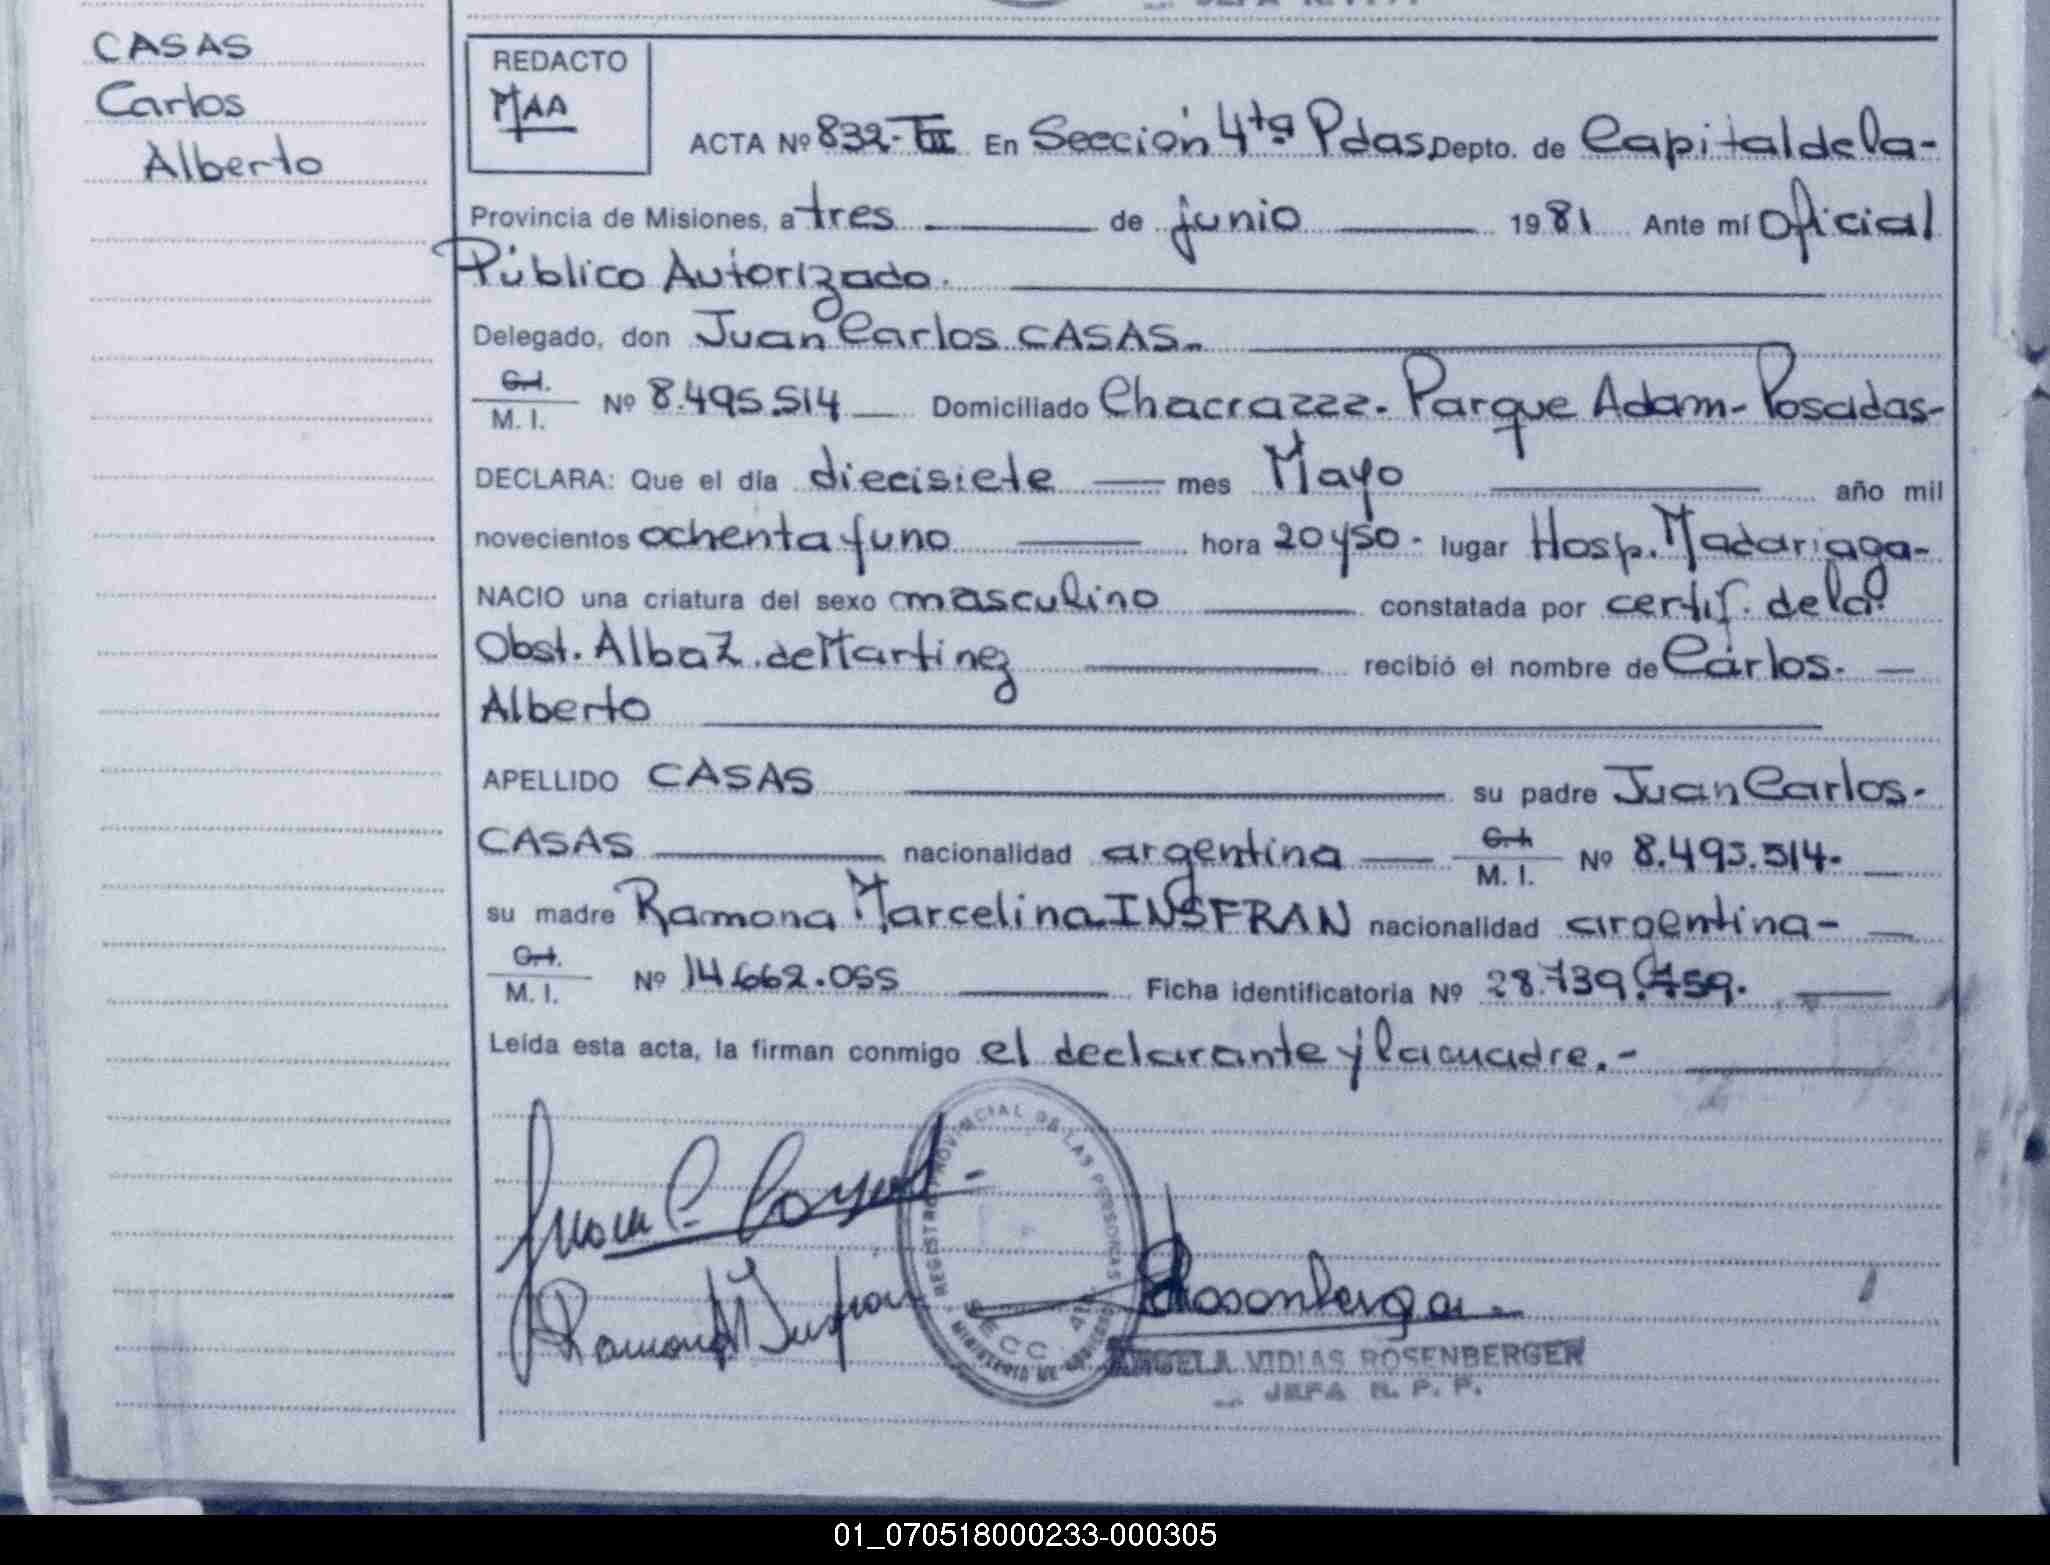 CASAS
Carlos
Alberto
REDACTO
MAA
ACTA Nº 832-TIII En Sección 4ta Pdas, Depto. de Capital de la-
Provincia de Misiones, a tres de junio 1981 Ante mí Oficial
Público Autorizado.
Delegado, don Juan Carlos CASAS.-
C.I.
M. I. Nº 8.495.514 Domiciliado Chacra 222. Parque Adam- Posadas-
DECLARA: Que el día diecisiete mes Mayo año mil
novecientos ochenta y uno hora 20 y 50. lugar Hosp. Madariaga-
NACIO una criatura del sexo masculino constatada por certif. de la
Obst. Alba Z. de Martinez recibió el nombre de Carlos.
Alberto
APELLIDO CASAS su padre Juan Carlos.
CASAS nacionalidad argentina C.I.
M. I. Nº 8.495.514.
su madre Ramona Marcelina INSFRAN nacionalidad argentina-
C.I.
M. I. Nº 14.662.055 Ficha identificatoria Nº 28.739.759.
Leída esta acta, la firman conmigo el declarante y la madre.-
REGISTRO PROVINCIAL DE LAS PERSONAS
MINISTERIO DE GOBIERNO
SECC. 4ta
Ramona M Insfrán
Rosenberger
ANGELA VIDIAS ROSENBERGER
JEFA R. P. P.
01_070518000233-000305